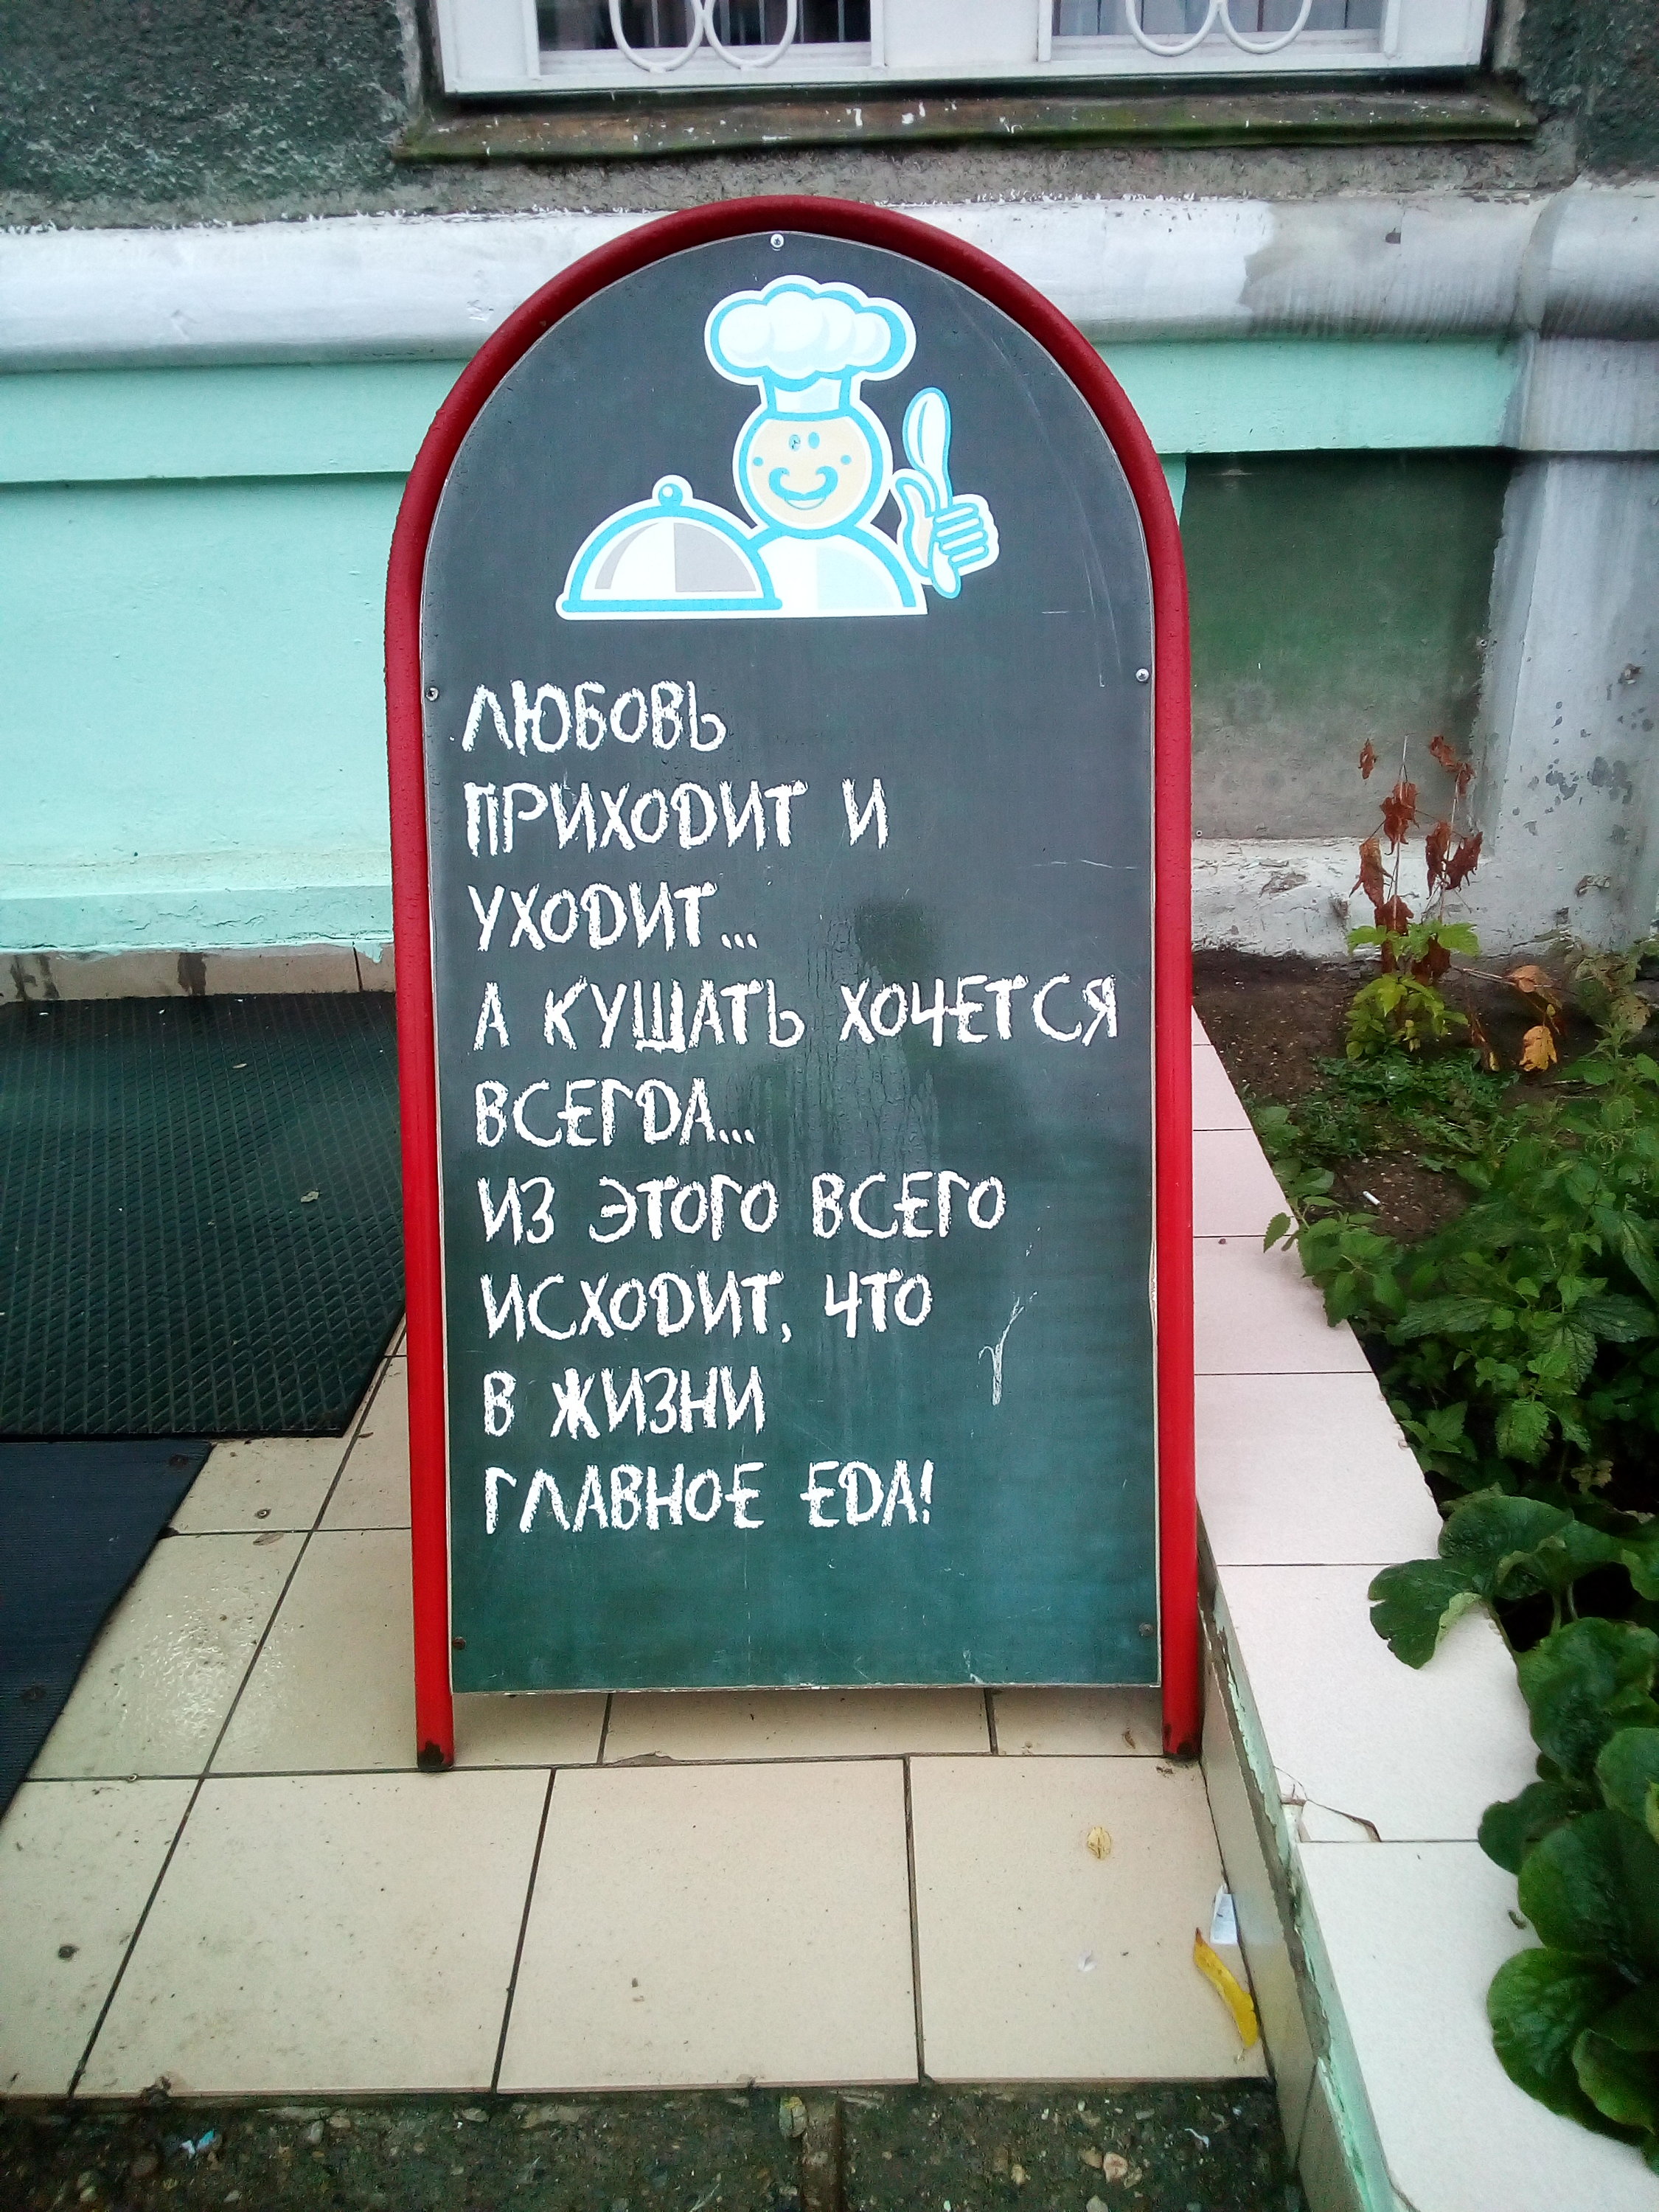 ЛЮБОВЬ
ПРИХОДИТ И
УХОДИТ...
А КУШАТЬ ХОЧЕТСЯ
ВСЕГДА...
ИЗ ЭТОГО ВСЕГО
ИСХОДИТ, ЧТО
В ЖИЗНИ
ГЛАВНОЕ ЕДА!